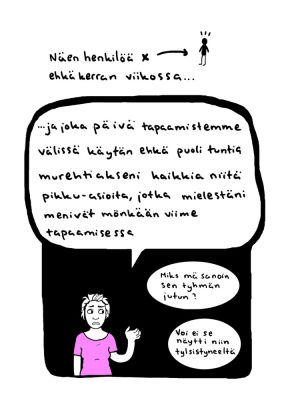 Näen henkilöä x
ehkä kerran viikossa...
...ja joka päivä tapaamistemme
välissä käytän ehkä puoli tuntia
murehtiakseni kaikkia niitä
pikku-asioita, jotka mielestäni
menivät mönkään viime
tapaamisessa
Miks mä sanoin
sen tyhmän
jutun?
Voi ei se
näytti niin
tylsistyneeltä